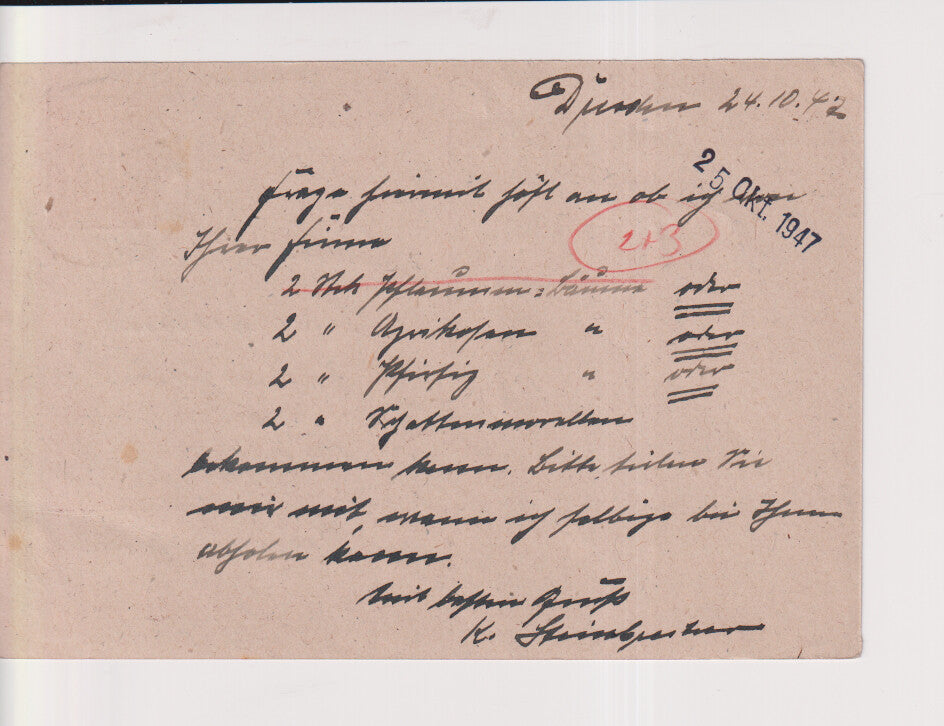 Dresden 24.10.47
25. Okt. 1947
Frage hiermit höfl an ob ich von
Ihrer Firma
2+3
2 Stck Pflaumen=bäume oder
2 " Aprikosen " oder
2 " Pfirsig " oder
2 " Schattenmorellen
bekommen kann. Bitte teilen Sie
mir mit, wann ich selbige bei Ihnen
abholen kann.
Mit bestem Gruß
K.